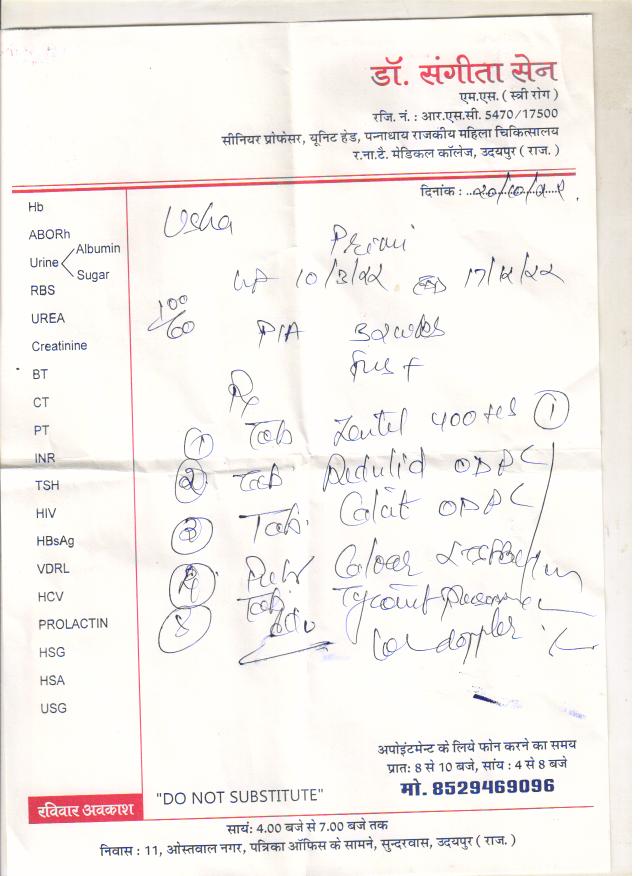 डॉ. संगीता सेन
एम.एस. ( स्त्री रोग )
रजि. नं. : आर.एस.सी. 5470/17500
सीनियर प्रोफेसर, यूनिट हेड, पन्नाधाय राजकीय महिला चिकित्सालय
र.ना.टै. मेडिकल कॉलेज, उदयपुर ( राज. )
दिनांक :
Hb
ABORh
Urine Albumin
Sugar
RBS
UREA
Creatinine
BT
CT
PT
INR
TSH
HIV
HBsAg
VDRL
HCV
PROLACTIN
HSG
HSA
USG
Usha
Primi
10/3/22 17/12/22
100/60
P/A 32 wks
Rx
1 Tab Zentel 400 1
2 Tab
3 Tab.
4
5 Tab.
doppler
अपोइंटमेन्ट के लिये फोन करने का समय
प्रातः 8 से 10 बजे, सांय : 4 से 8 बजे
मो. 8529469096
रविवार अवकाश
"DO NOT SUBSTITUTE"
सायं: 4.00 बजे से 7.00 बजे तक
निवास : 11, ओस्तवाल नगर, पत्रिका ऑफिस के सामने, सुन्दरवास, उदयपुर ( राज. )